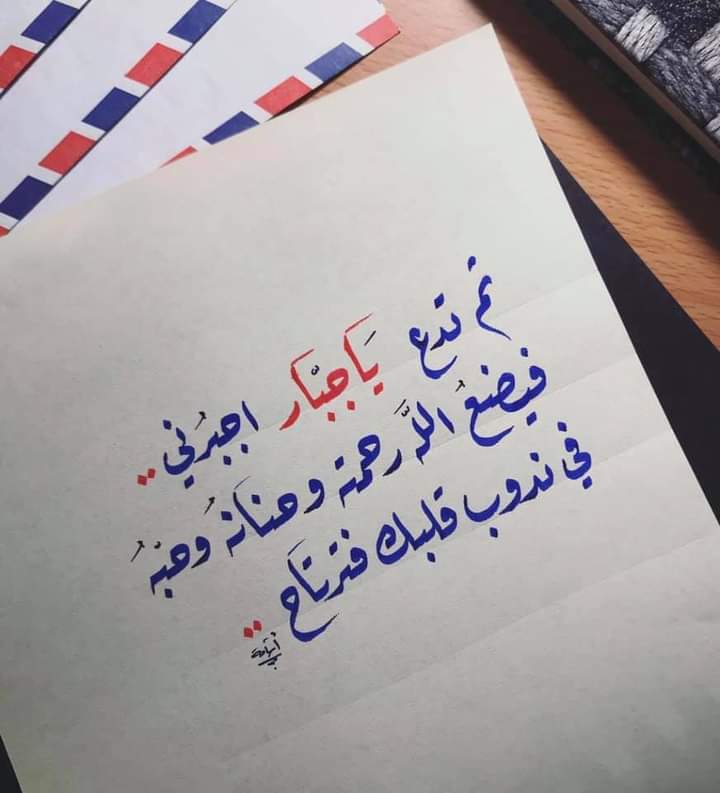 ثم تدع يَا جبَّار اجبُرني ..
فيضعُ اللَّه رحمته وحنانهُ وُحبّهُ
في ندوب قلبك فترتَاح ..